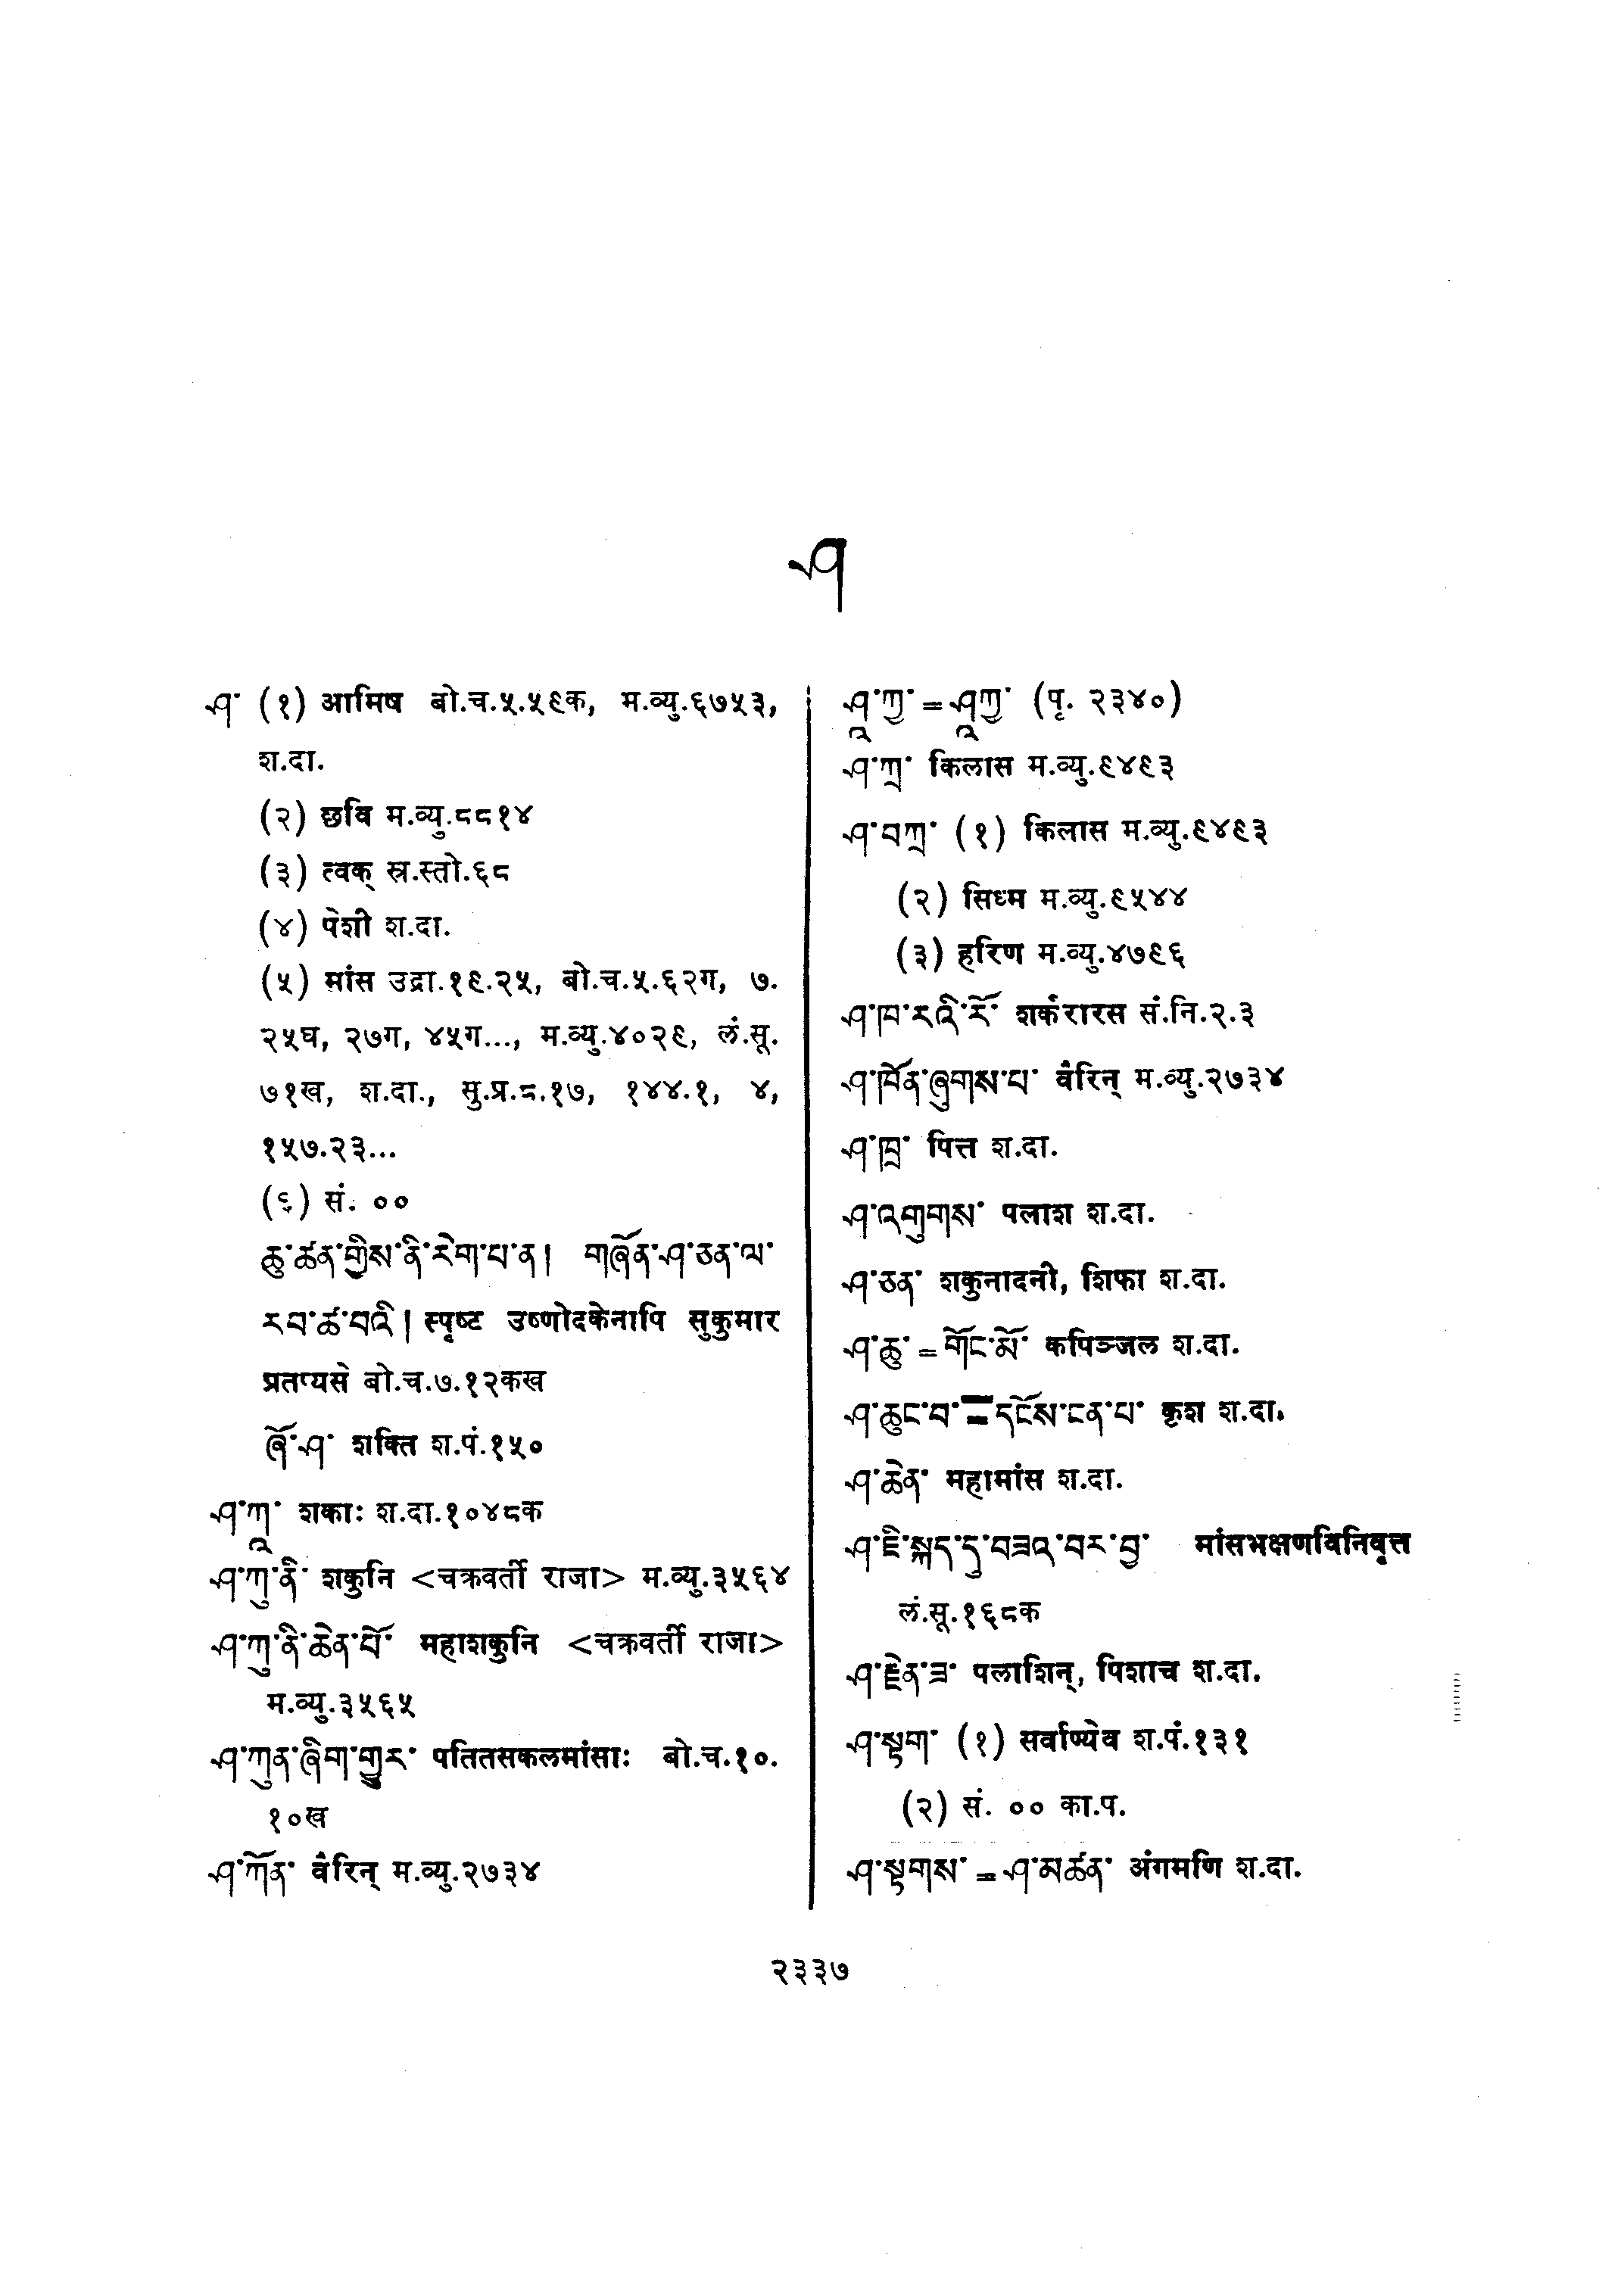 ཤ
ཤ་ (१) आमिष बो.च.५.५९क, म.व्यु.६७५३,
श.दा.
(२) छवि म.व्यु.८८१४
(३) त्वक् स्र.स्तो.६८
(४) पेशी श.दा.
(५) मांस उद्रा.१९.२५, बो.च.५.६२ग, ७.
२५घ, २७ग, ४५ग..., म.व्यु.४०२९, लं.सू.
७१ख, श.दा., सु.प्र.८.१७, १४४.१, ४,
१५७.२३...
(६) सं. ००
ཆུ་ཚན་གྱིས་ནི་རེག་པ་ན། གཞོན་ཤ་ཅན་ལ་
རབ་ཚ་བའི། स्पृष्ट उष्णोदकेनापि सुकुमार
प्रतप्यसे बो.च.७.१२कख
ཞོ་ཤ་ शक्ति श.पं.१५०
ཤ་ཀཱ་ शकाः श.दा.१०४८क
ཤ་ཀུ་ནི་ शकुनि <चक्रवर्ती राजा> म.व्यु.३५६४
ཤ་ཀུ་ནི་ཆེན་པོ་ महाशकुनि <चक्रवर्ती राजा>
म.व्यु.३५६५
ཤ་ཀུན་ཞིག་གྱུར་ पतितसकलमांसाः बो.च.१०.
१०ख
ཤ་ཀོན་ वैरिन् म.व्यु.२७३४
ཤཱ་ཀྱ་ = ཤཱཀྱ་ (पृ. २३४०)
ཤ་ཀྲ་ किलास म.व्यु.९४९३
ཤ་བཀྲ་ (१) किलास म.व्यु.९४९३
(२) सिध्म म.व्यु.९५४४
(३) हरिण म.व्यु.४७९६
ཤ་ཁ་རའི་རོ་ शर्करारस सं.नि.२.३
ཤ་ཁོན་ཞུགས་པ་ वैरिन् म.व्यु.२७३४
ཤ་ཁྲ་ पित्त श.दा.
ཤ་འགུགས་ पलाश श.दा.
ཤ་ཅན་ शकुनादनी, शिफा श.दा.
ཤ་ཆུ་ = གོང་མོ་ कपिञ्जल श.दा.
ཤ་ཆུང་བ་ = དངོས་ངན་པ་ कृश श.दा.
ཤ་ཆེན་ महामांस श.दा.
ཤ་ཇི་སྐད་དུ་བཟའ་བར་བྱ་ मांसभक्षणविनिवृत्त
लं.सू.१६८क
ཤ་རྗེན་ཟ་ पलाशिन्, पिशाच श.दा.
ཤ་སྟག་ (१) सर्वाण्येव श.पं.१३१
(२) सं. ०० का.प.
ཤ་སྟགས་ = ཤ་མཚན་ अंगमणि श.दा.
२३३७